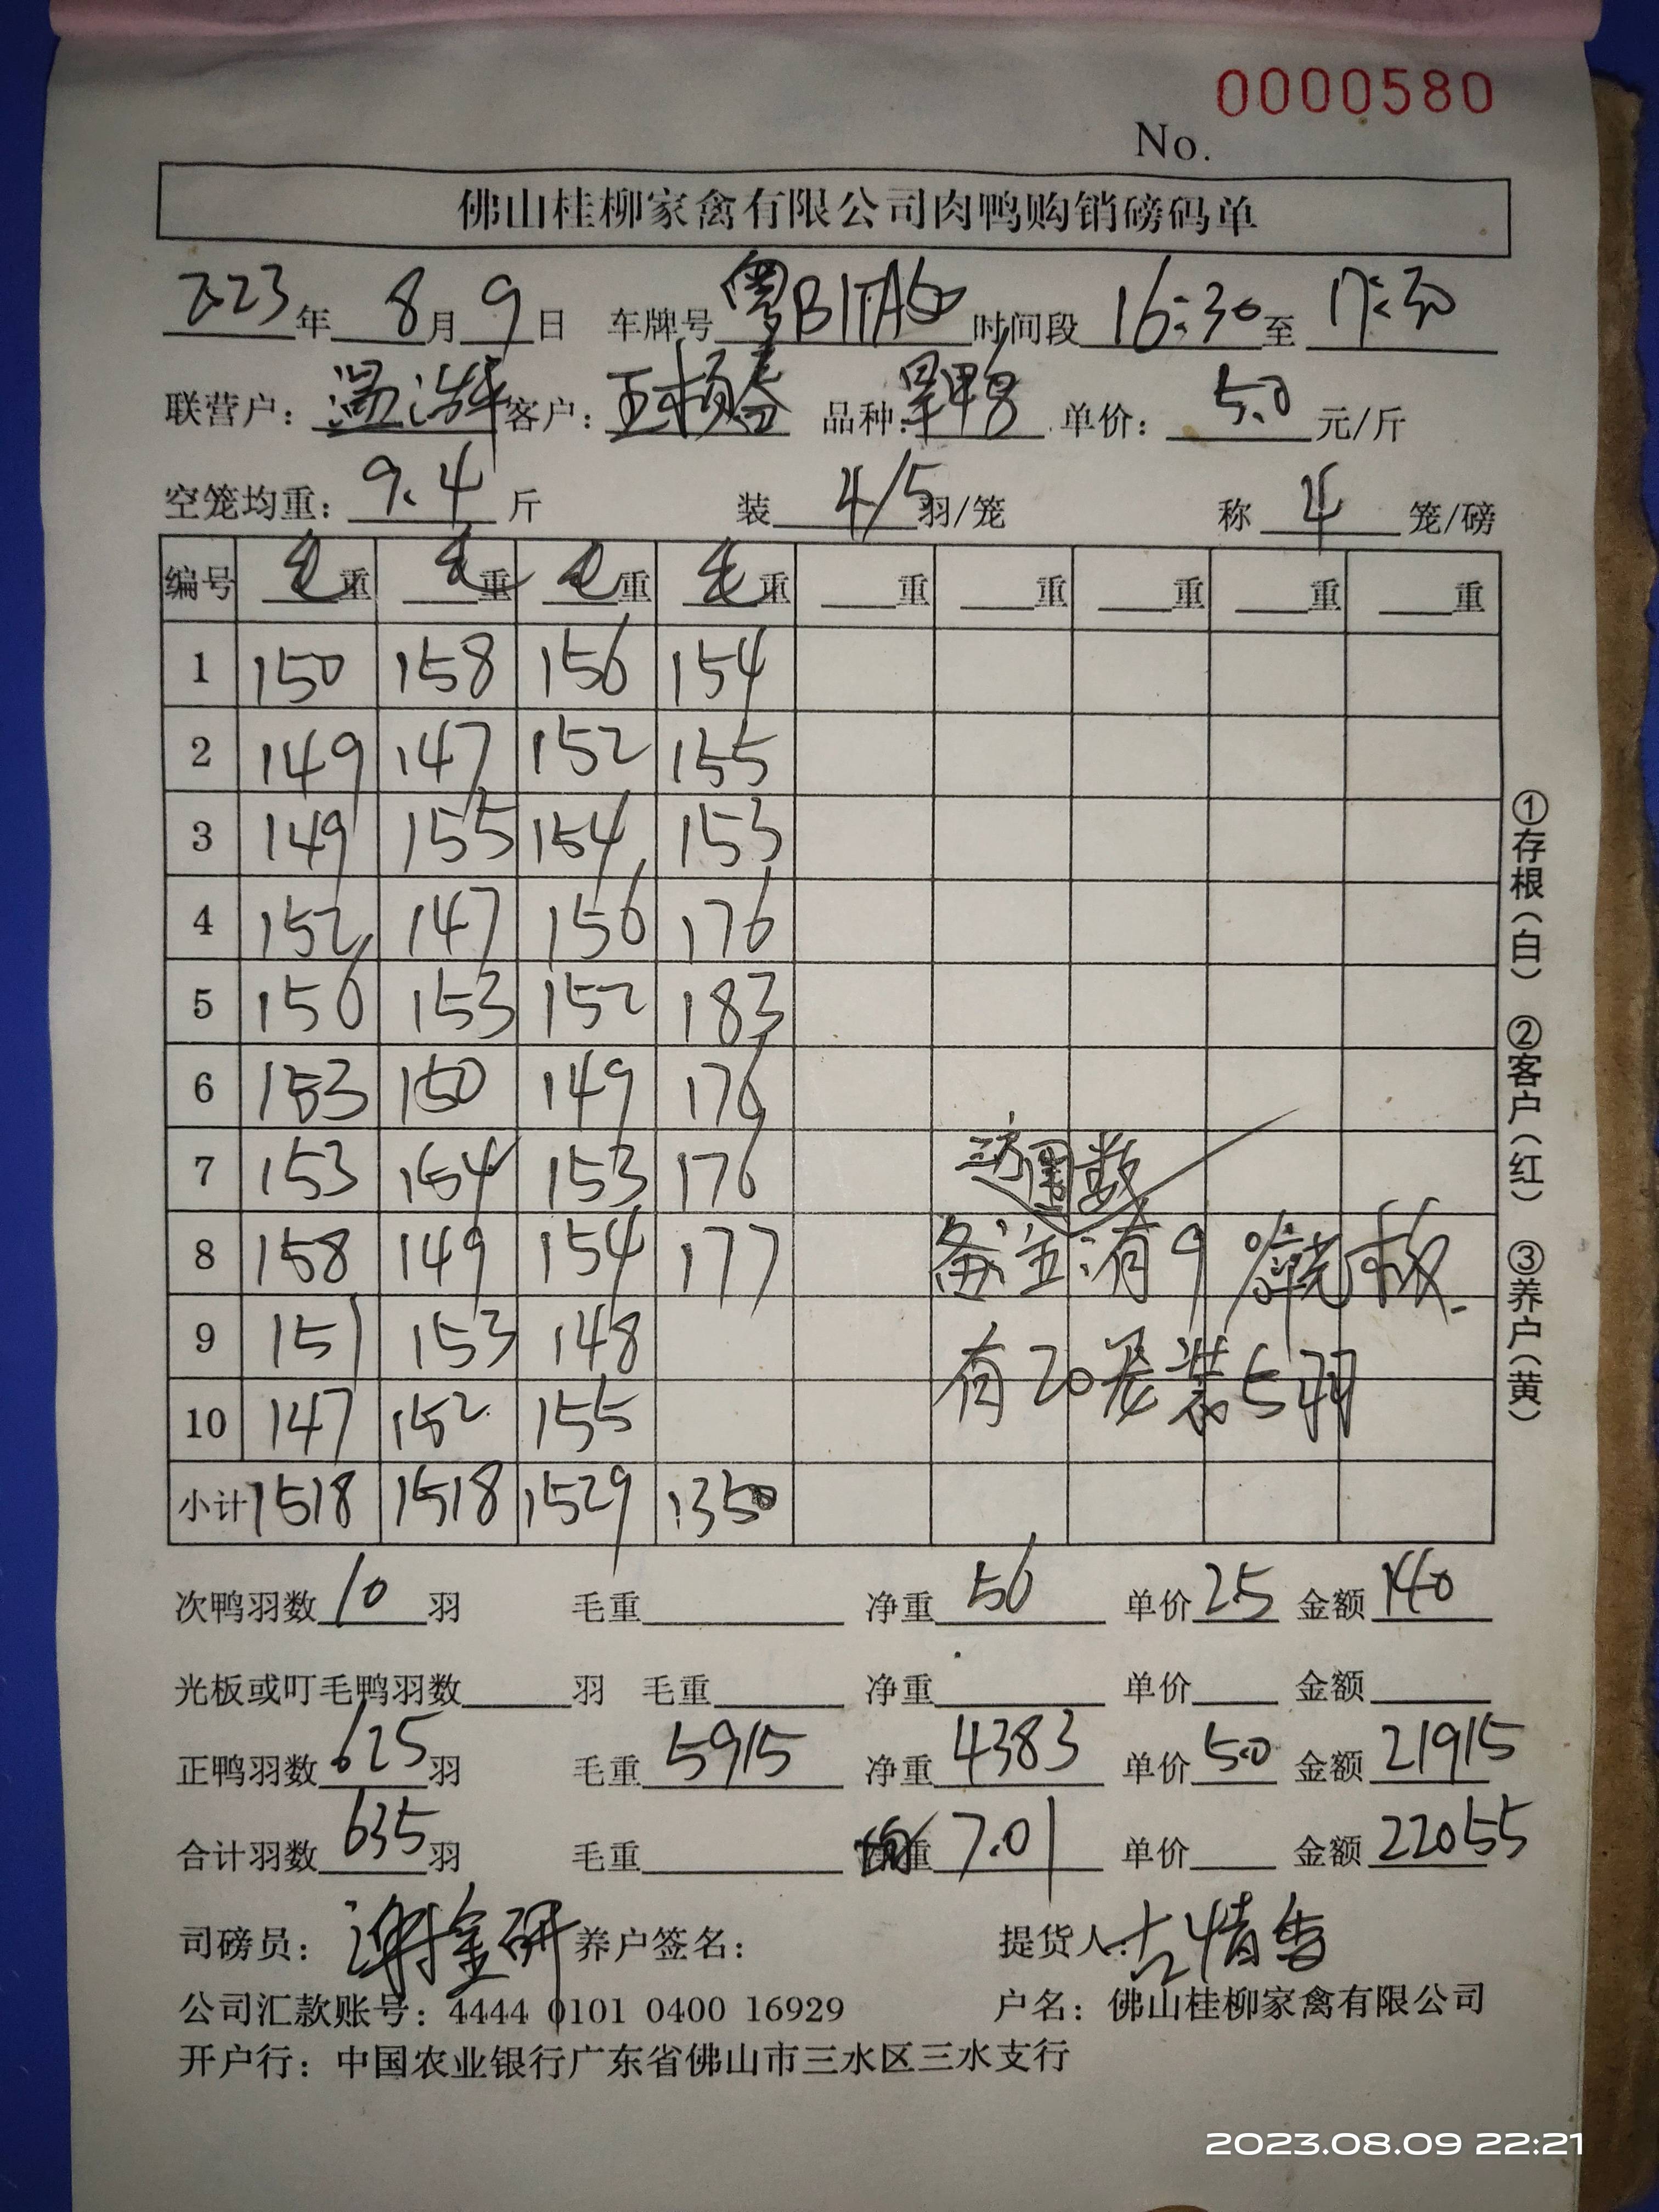 0000580
No.
佛山桂柳家禽有限公司肉鸭购销磅码单
2023年 8月 9日 车牌号 粤B 时间段 16:30 至 17:30
联营户: 温 客户: 王 春 品种: 鸭 单价: 5.0 元/斤
空笼均重: 9.4 斤 装 4/5 羽/笼 称 4 笼/磅
编号 毛重 毛重 毛重 毛重 重 重 重 重 重
1 150 158 156 154
2 149 147 152 155
3 149 155 154 153
4 152 147 156 176
5 156 153 152 183
6 153 150 149 176
7 153 154 153 176 数
8 158 149 154 177 备注:有9
9 151 153 148
10 147 152 155 有20笼装5羽
小计 1518 1518 1529 1350
①存根(白) ②客户(红) ③养户(黄)
次鸭羽数 10 羽 毛重 净重 56 单价 2.5 金额 140
光板或叮毛鸭羽数 羽 毛重 净重 单价 金额
正鸭羽数 625 羽 毛重 5915 净重 4383 单价 5.0 金额 21915
合计羽数 635 羽 毛重 均重 7.01 单价 金额 22055
司磅员: 谢金研 养户签名: 提货人: 古
公司汇款账号: 4444 0101 0400 16929 户名: 佛山桂柳家禽有限公司
开户行: 中国农业银行广东省佛山市三水区三水支行
2023.08.09 22:21